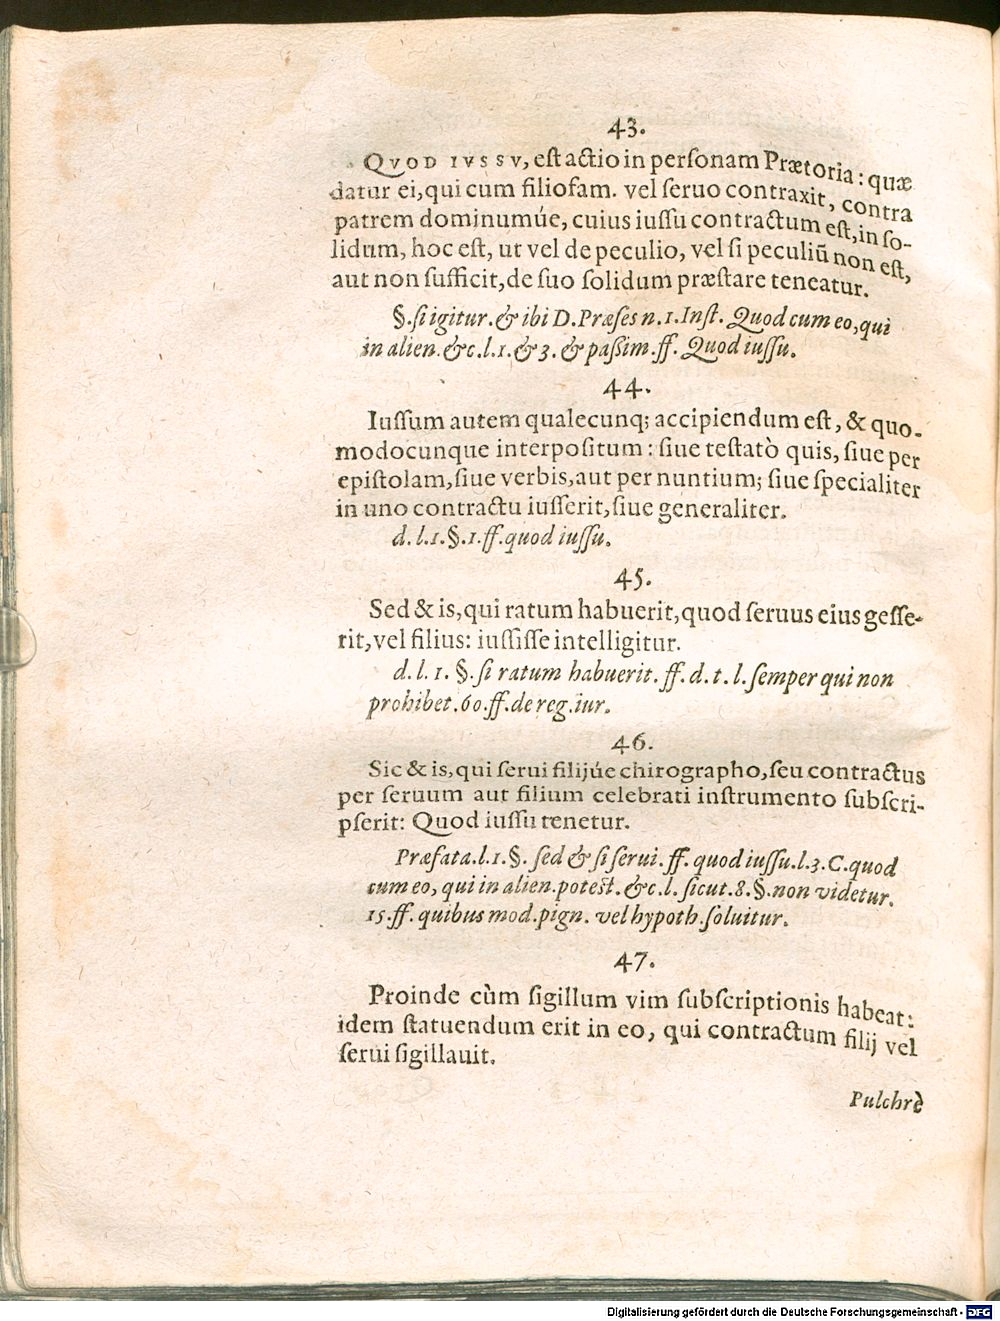 43.
QVOD IVSSV, est actio in personam Prætoria: quæ
datur ei, qui cum filiofam. vel seruo contraxit, contra
patrem dominumúe, cuius iussu contractum est, in so-
lidum, hoc est, ut vel de peculio, vel si peculiũ non est,
aut non sufficit, de suo solidum præstare teneatur.
§. si igitur. & ibi D. Præses n. 1. Inst. Quod cum eo, qui
in alien. &c. l. 1. & 3. & paßim. ff. Quod iussu.
44.
Iussum autem qualecunq; accipiendum est, & quo-
modocunque interpositum: siue testatò quis, siue per
epistolam, siue verbis, aut per nuntium; siue specialiter
in uno contractu iusserit, siue generaliter.
d. l. 1. §. 1. ff. quod iussu.
45.
Sed & is, qui ratum habuerit, quod seruus eius gesse-
rit, vel filius: iussisse intelligitur.
d. l. 1. §. si ratum habuerit. ff. d. t. l. semper qui non
prohibet. 60. ff. de reg. iur.
46.
Sic & is, qui serui filijúe chirographo, seu contractus
per seruum aut filium celebrati instrumento subscri-
pserit: Quod iussu tenetur.
Præfata. l. 1. §. sed & si serui. ff. quod iussu. l. 3. C. quod
cum eo, qui in alien. potest. &c. l. sicut. 8. §. non videtur.
15. ff. quibus mod. pign. vel hypoth. soluitur.
47.
Proinde cùm sigillum vim subscriptionis habeat:
idem statuendum erit in eo, qui contractum filij vel
serui sigillauit.
Pulchrè
Digitalisierung gefördert durch die Deutsche Forschungsgemeinschaft - DFG